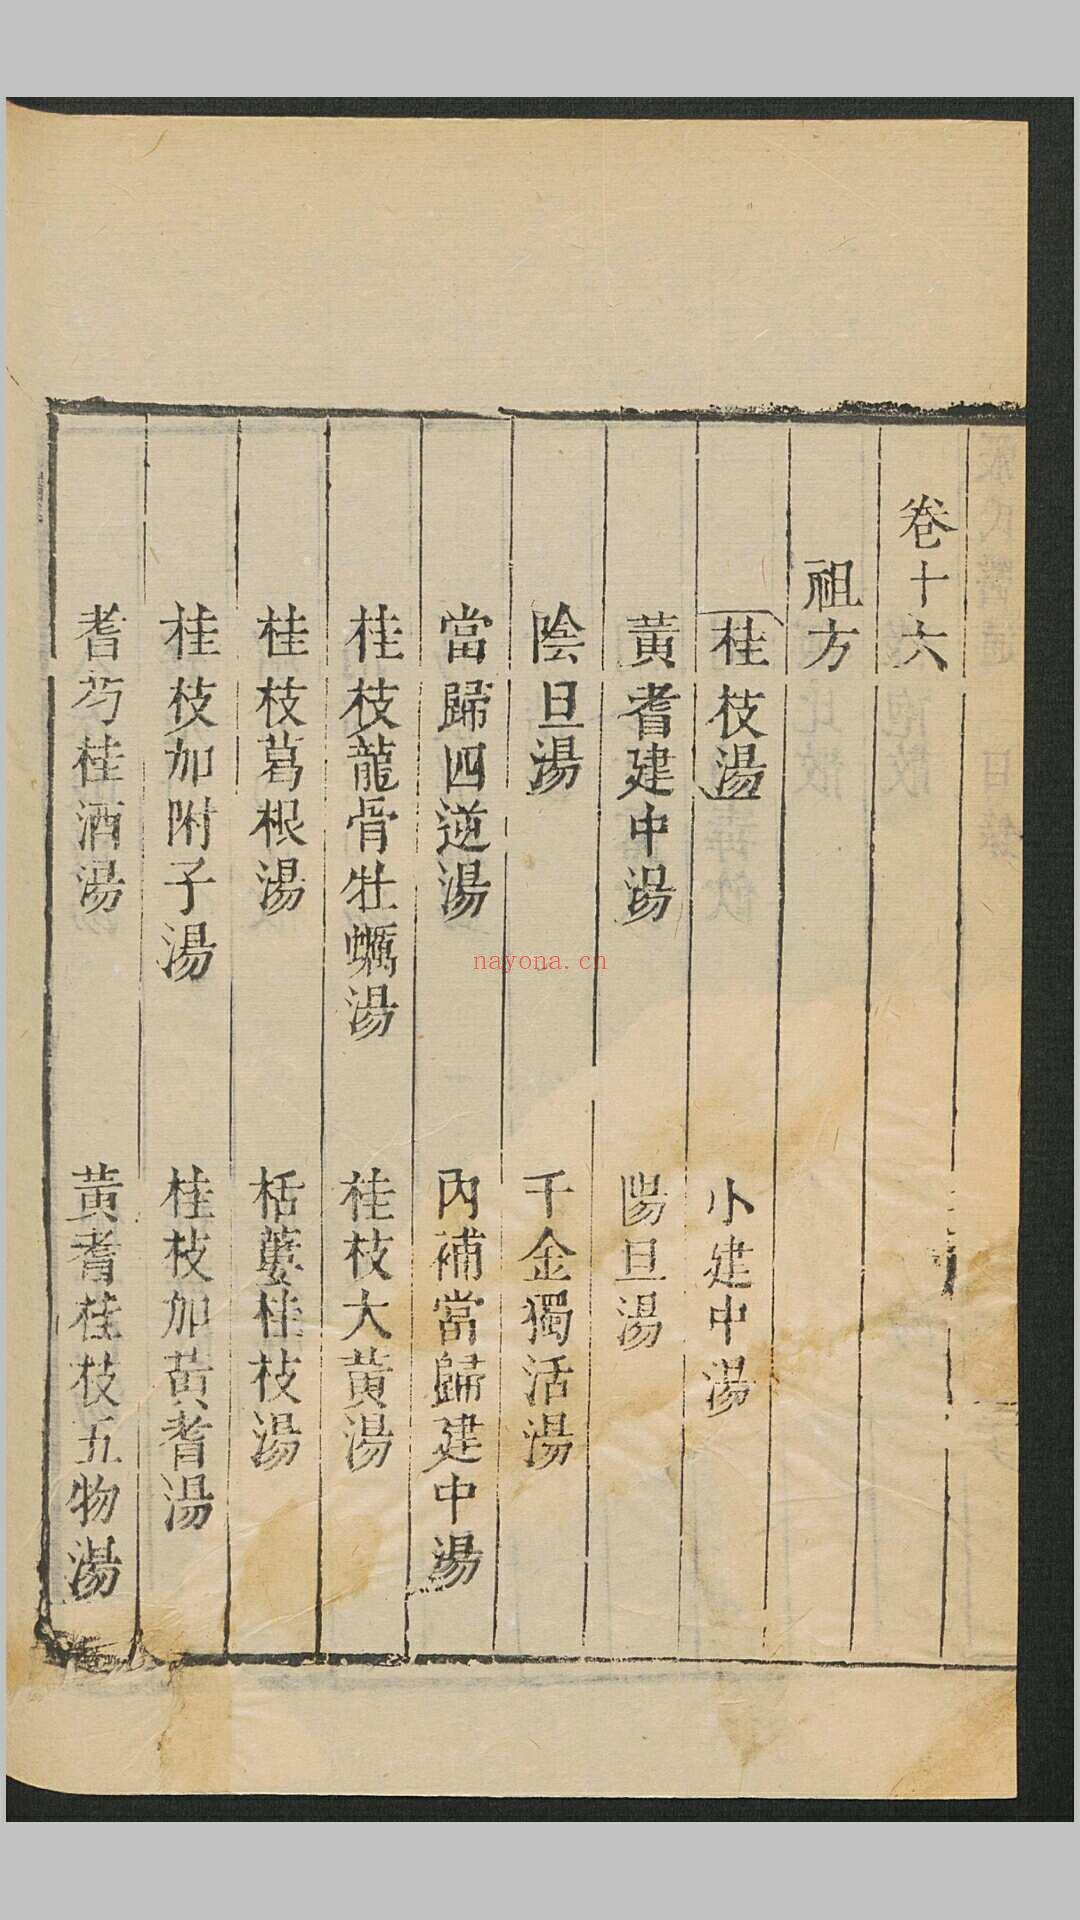 卷十六
祖方
桂枝湯 小建中湯
黃耆建中湯 陽旦湯
陰旦湯 千金獨活湯
當歸四逆湯 內補當歸建中湯
桂枝龍骨牡蠣湯 桂枝大黃湯
桂枝葛根湯 栝蔞桂枝湯
桂枝加附子湯 桂枝加黃耆湯
耆芍桂酒湯 黃耆桂枝五物湯
nayona.cn